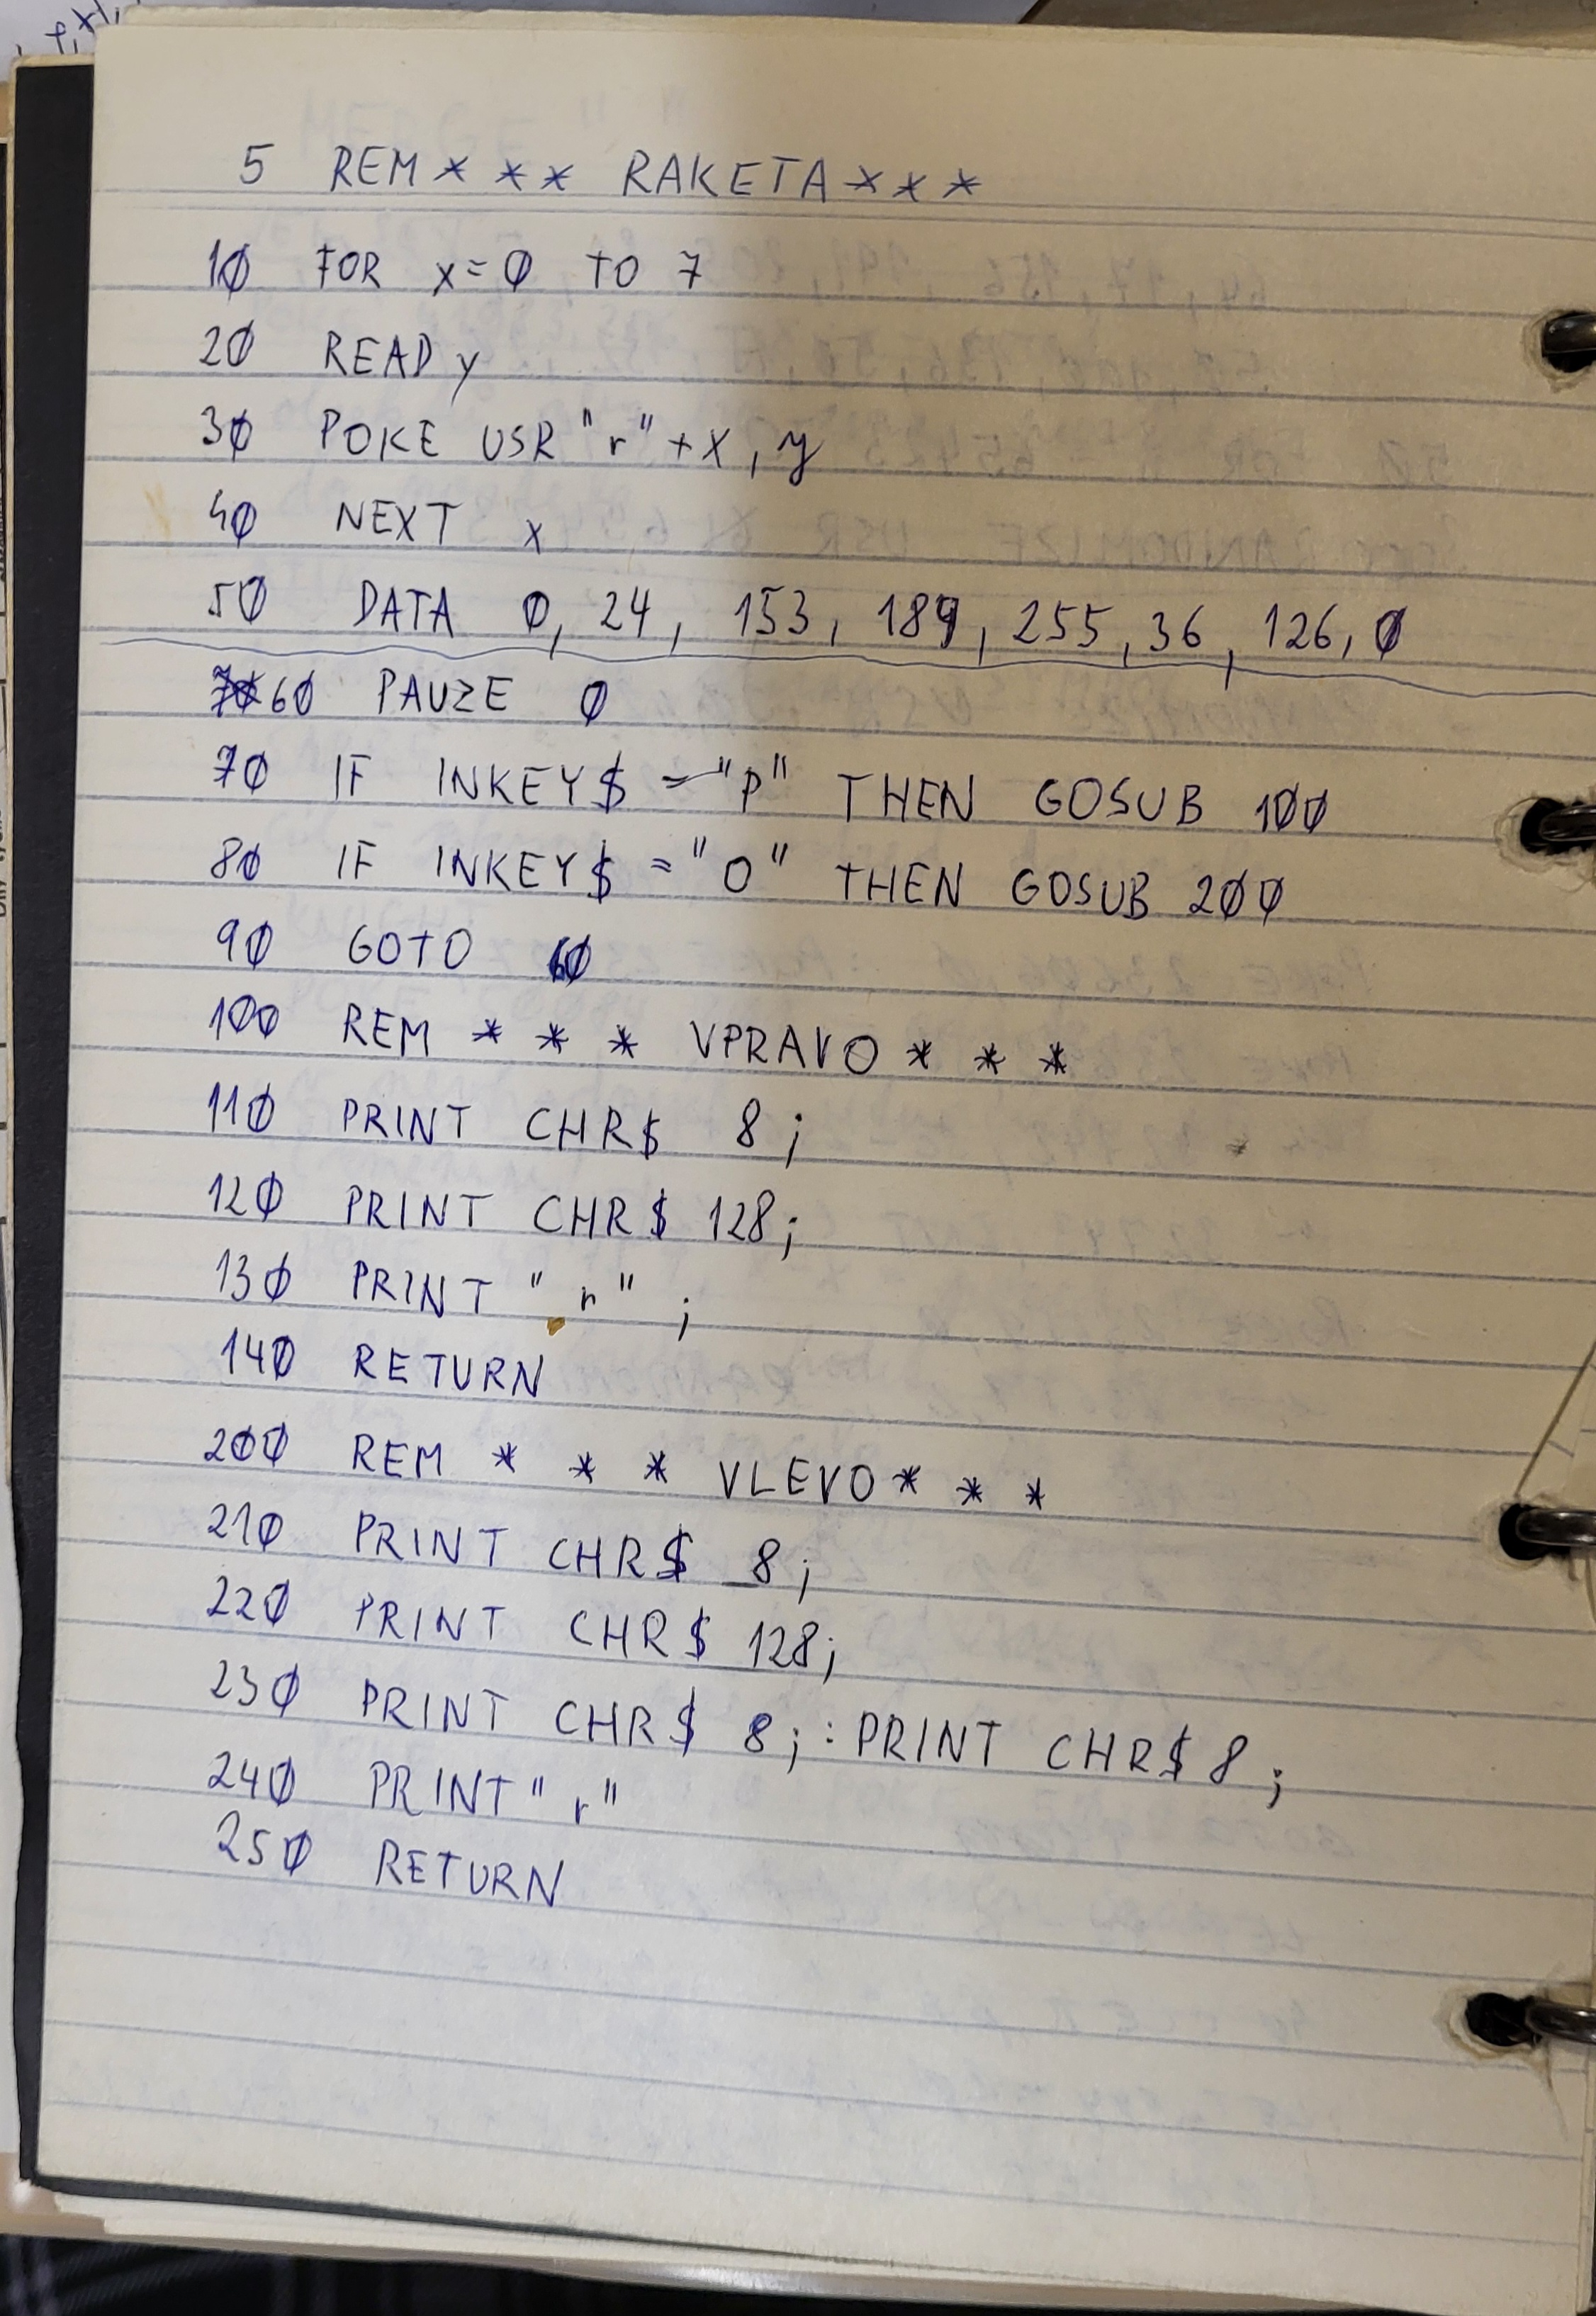 5 REM * * * RAKETA * * *
10 FOR x=0 TO 7
20 READ y
30 POKE USR "r"+x,y
40 NEXT x
50 DATA 0, 24, 153, 189, 255, 36, 126, 0
60 PAUZE 0
70 IF INKEY$ = "P" THEN GOSUB 100
80 IF INKEY$ = "O" THEN GOSUB 200
90 GOTO 60
100 REM * * * VPRAVO * * *
110 PRINT CHR$ 8;
120 PRINT CHR$ 128;
130 PRINT "r";
140 RETURN
200 REM * * * VLEVO * * *
210 PRINT CHR$ 8;
220 PRINT CHR$ 128;
230 PRINT CHR$ 8;: PRINT CHR$ 8;
240 PRINT "r"
250 RETURN